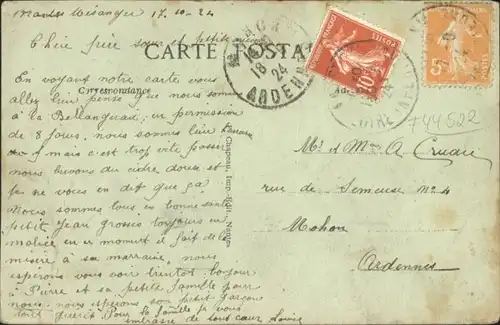 Mantes Mésanger 17-10-24
Chère père sœur et petite nièce
CARTE POSTALE
En voyant notre carte, vous
Correspondance
Adresse
allez bien pensé que nous sommes
à la Bellangerais, en permission
de 8 jours, nous sommes bien heureux
mais c'est trop vite passé
nous buvons du cidre doux et
je ne vous en dit que ça
Nous sommes tous en bonne santé
petit Jean grossi toujours
malice en ce moment il fait de la
misère à sa marraine, nous
espérons vous voir bientôt bonjour
à Pierre et sa petite famille pour
nous, nous espérons son petit garçon
doit guérit Pour la famille je vous
embrasse de tout cœur Louise
18 24
ARDENNES
10
5
744522
Mr et Mme A. Crudu
rue de Semeuse No 4
Mohon
Ardennes
Chapeau, Imp. Edit., Nantes